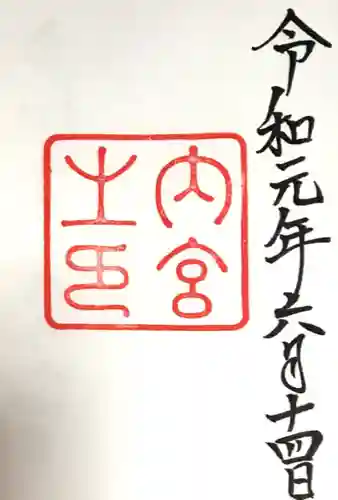 令和元年六月十四日
内宮
之印